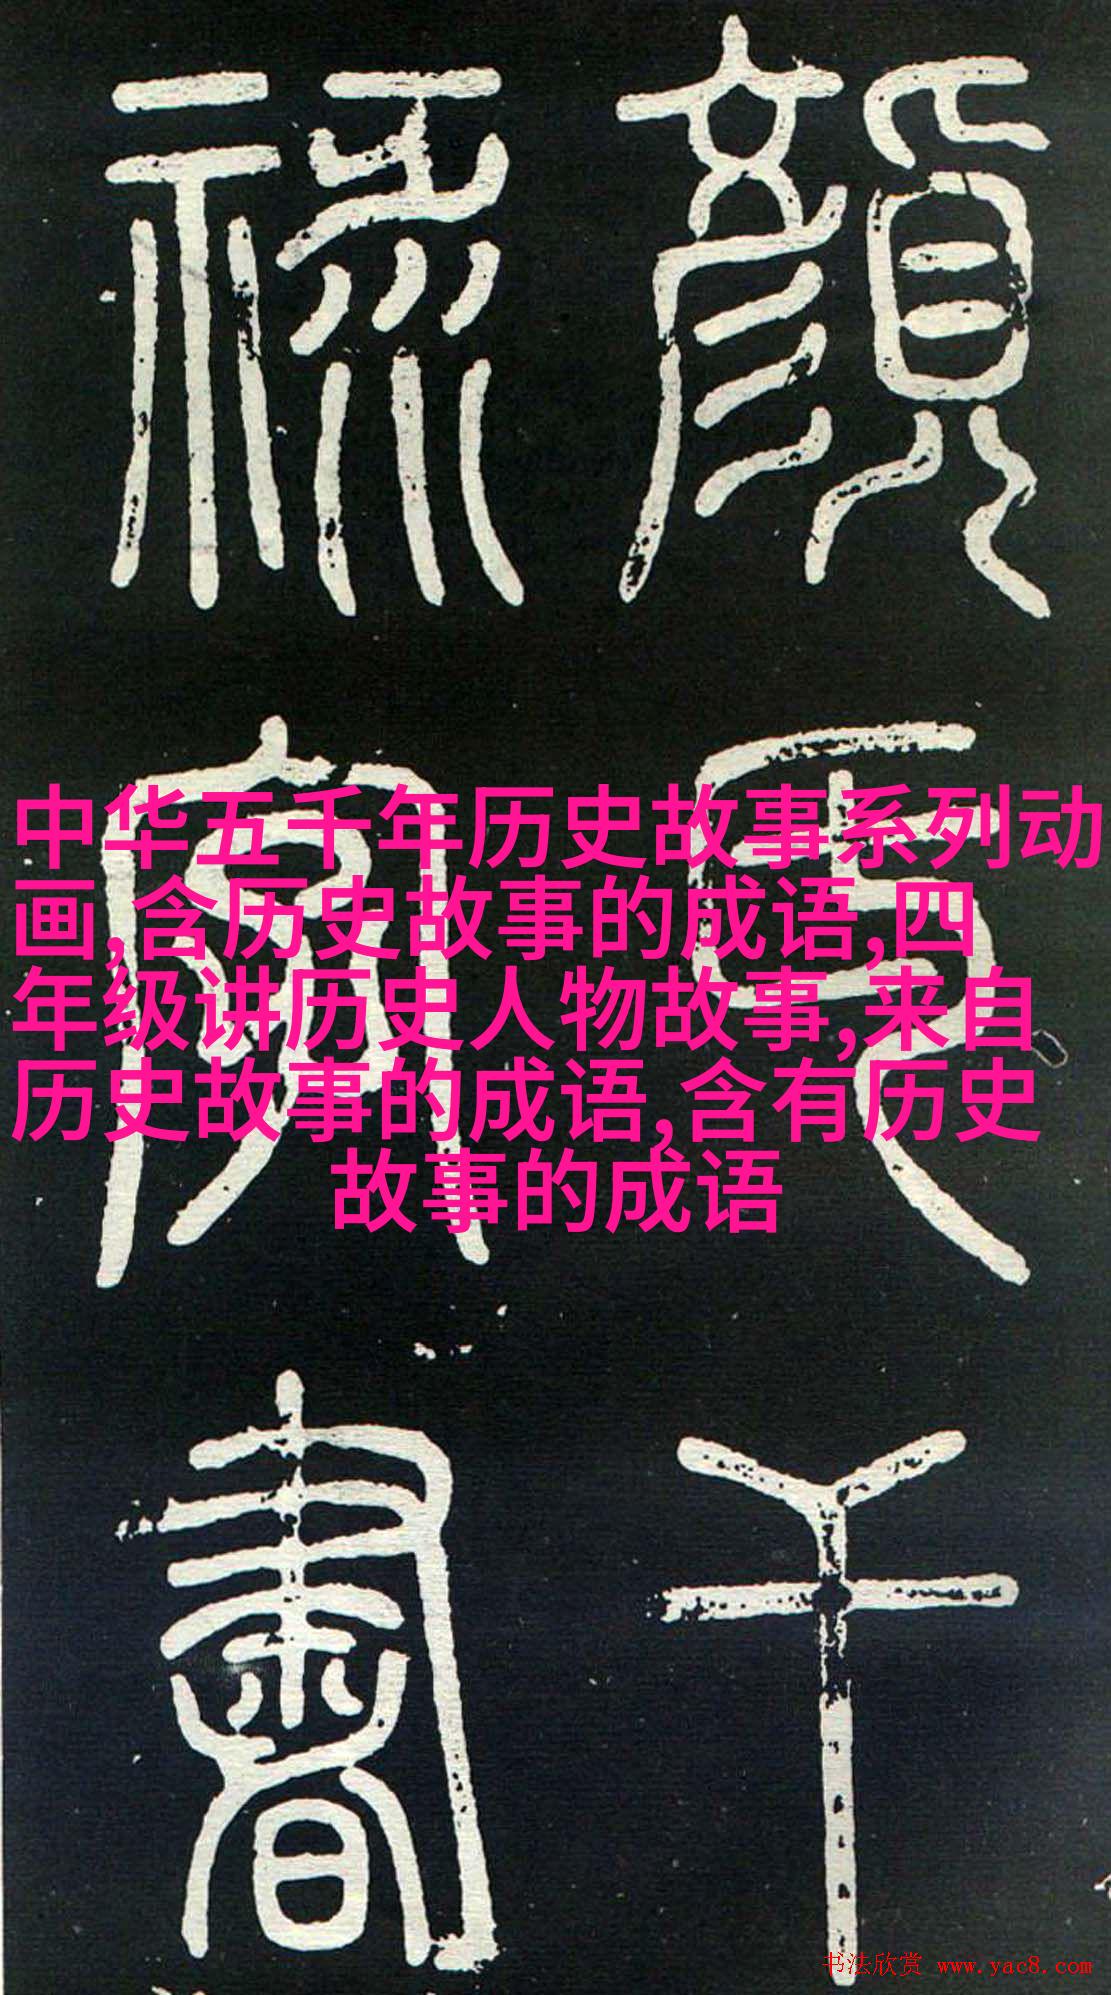 顏氏干
祿字書
中华五千年历史故事系列动
画,含历史故事的成语,四
年级讲历史人物故事,来自
历史故事的成语,含有历史
故事的成语
书法欣赏 www.yac8.com